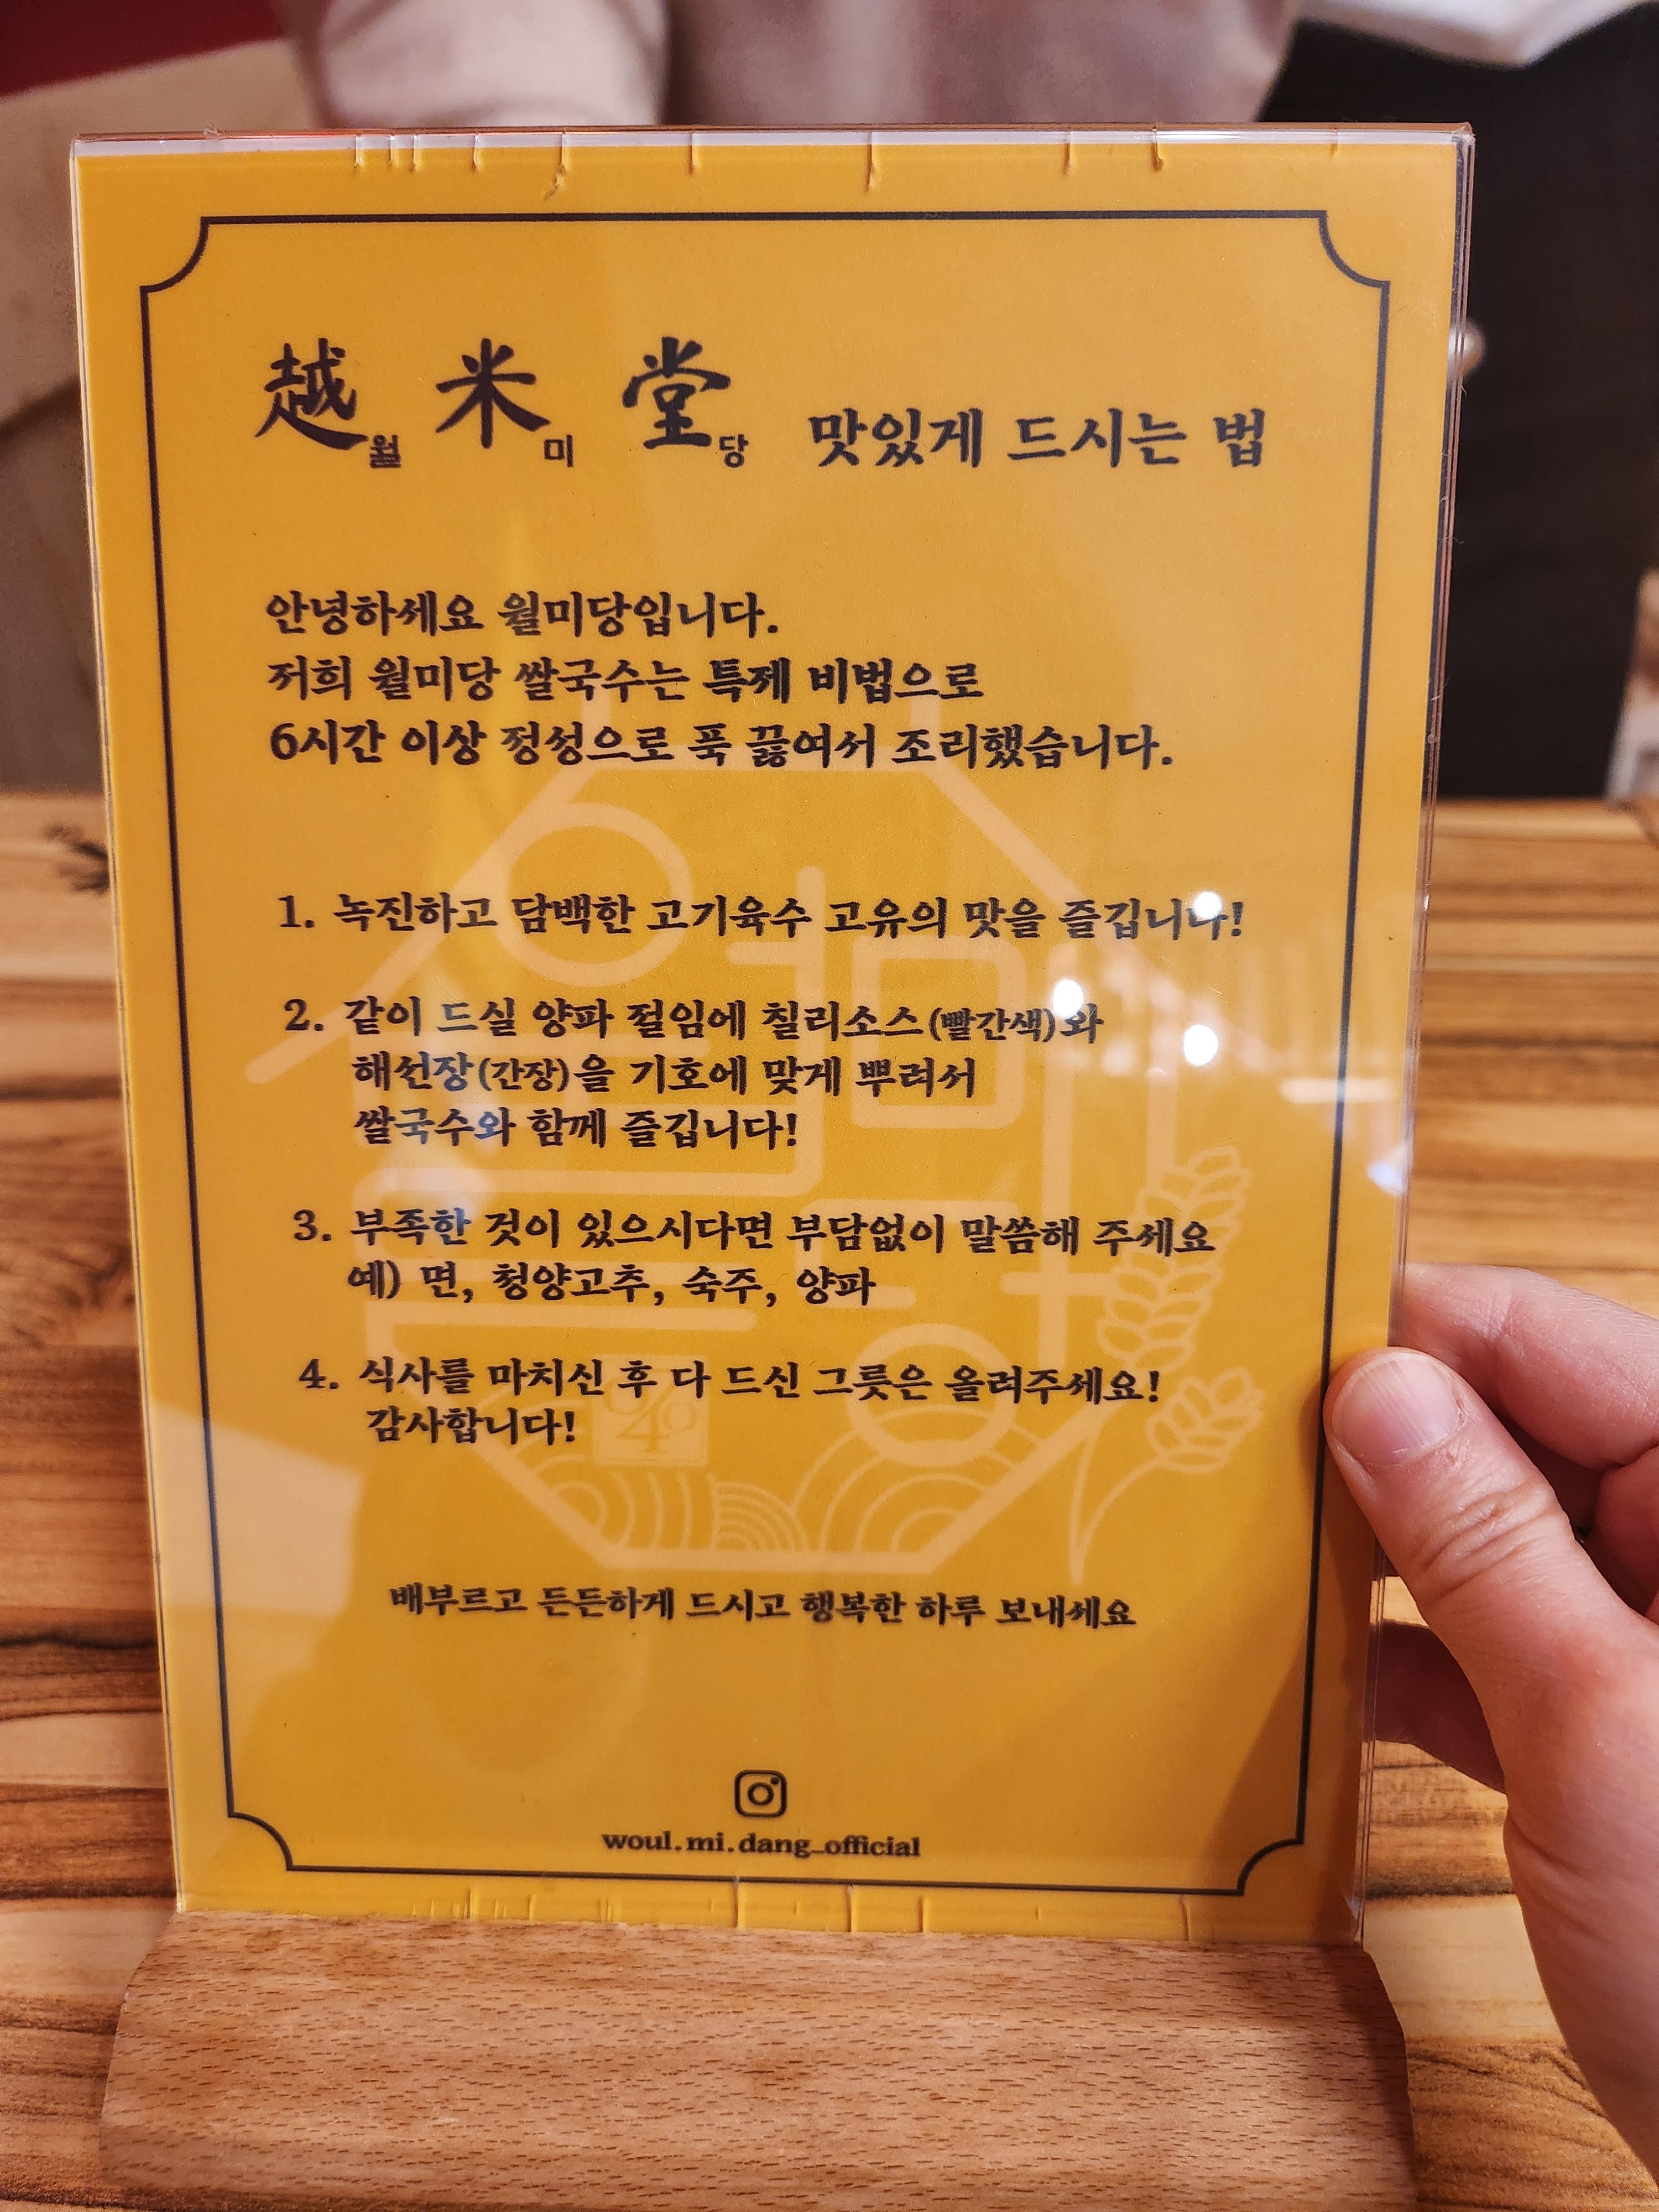 越월 米미 堂당 맛있게 드시는 법
안녕하세요 월미당입니다.
저희 월미당 쌀국수는 특제 비법으로
6시간 이상 정성으로 푹 끓여서 조리했습니다.
1. 녹진하고 담백한 고기육수 고유의 맛을 즐깁니다!
2. 같이 드실 양파 절임에 칠리소스(빨간색)와
해선장(간장)을 기호에 맞게 뿌려서
쌀국수와 함께 즐깁니다!
3. 부족한 것이 있으시다면 부담없이 말씀해 주세요
예) 면, 청양고추, 숙주, 양파
4. 식사를 마치신 후 다 드신 그릇은 올려주세요!
감사합니다!
배부르고 든든하게 드시고 행복한 하루 보내세요
woul.mi.dang_official